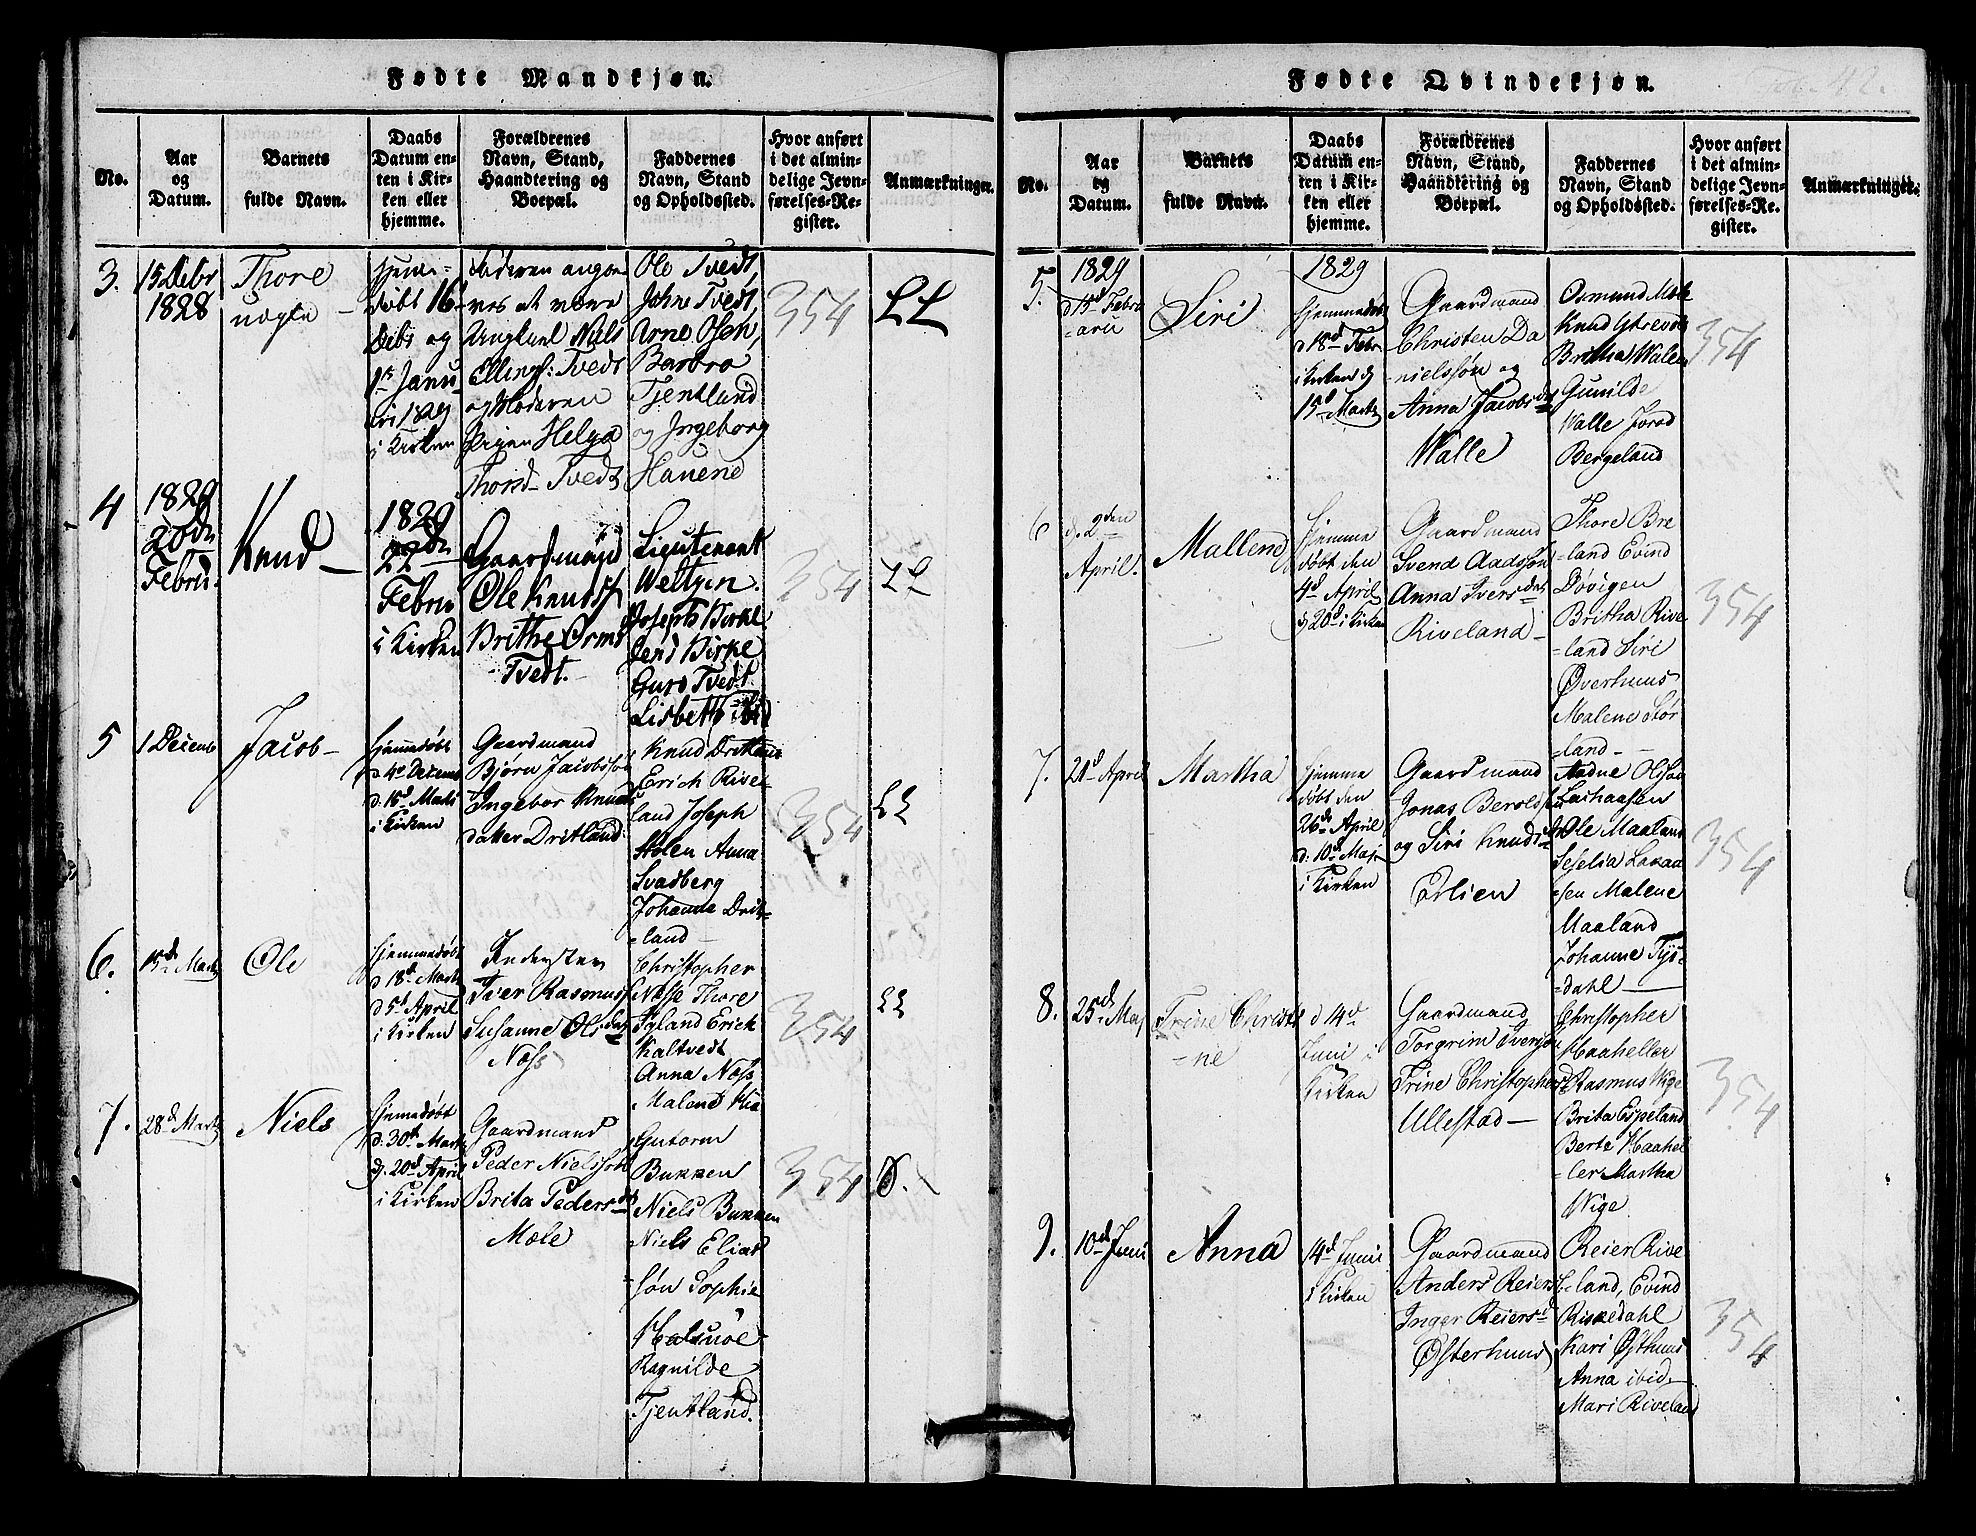 Fødte Mandkjøn.
No.
Aar
og
Datum.
Barnets
fulde Navn.
Daabs
Datum en-
ten i Kir-
ken eller
hjemme.
Forældrenes
Navn, Stand,
Haandtering og
Boepæl.
Faddernes
Navn, Stand
og Opholdssted.
Hvor anført
i det almin-
delige Jevn-
førelses-Re-
gister.
Anmærkninger.
3.
15 Debr
1828
Thore
uægte
døbt 16
Debr og
1 Janu
ari 1829
i Kirken
Faderen angi
ves at være
Ungkarl Nils
Ellings: Tvedt
og Moderen
Pigen Helga
Thorsd Tvedt
Ole Tvedt,
Johne Tvedt,
Arne Osen,
Barbro
Tjentland
og Ingeborg
Hauene
354
LL
4
1829
20de
Febru.
Knud
1829
22de
Febru
i Kirken
Gaardmand
Ole Knuds
Brithe Orms
Tvedt.
Lieutenant
Weltzen.
Josephs Birkel.
Jens Birke
Guro Tvedt
Lisbeth ibid
354
LL
5
1 Decemb
Jacob
Hjemmedøbt
d 4d Decemb
d. 15d Marti
i Kirken
Gaardmand
Bjørn Jacobssøn
Ingebor Knuds
datter Dritland
Knud Dritland
Erick Rive-
land Joseph
Stølen Anna
Svadberg
Johanna Drit-
=land
354
LL
6.
15d Marti
Ole
Hjemmedøbt
d 18d Marti
d 5d April
i Kirken
Inderster
Tier Rasmuss
Susanne Olsdat
Næss
Christopher
Næsse Thore
Tyland Erick
Kaltvedt
Anna Næss
Malene Kia
354
LL
7.
28d Marti
Niels
Hjemmedøbt
d. 30d Marti
d. 20d April
i Kirken
Gaardmand
Peder Nielssøn
Brita Pedersd
Mæle
Gutorm
Bukken
Niels Bukken
Niels Elias
søn Sophie
Halsnøe
Ragnilde
Tjentland.
354
Fødte Qvindekjøn.
42.
No.
Aar
og
Datum.
Barnets
fulde Navn.
Daabs
Datum en-
ten i Kir-
ken eller
hjemme.
Forældrenes
Navn, Stand,
Haandtering og
Boepæl.
Faddernes
Navn, Stand
og Opholdssted.
Hvor anført
i det almin-
delige Jevn-
førelses-Re-
gister.
Anmærkninger.
5.
1829
d 15d Febru
=arii
Siri
1829
Hjemmedøbt
d 18d Febr.
i Kirken d
15d Marti
Gaardmand
Christen Da
=nielssøn og
Anna Jacobsdat
Walle
Osmund Mæle
Knud Ytrevold
Britha Walen
Gunilde
Walle Jored
Bergeland
354
6
d. 2den
April.
Mallene
Hjemme
døbt den
4d April
d 20d i Kirken
Gaardmand
Svend Aadssøn
Anna Iversdat
Riveland
Thore Bre
land Evind
Døvigen
Britha Rive
=land Siri
Øverhuus
Malene Stør
=land
354
7.
21d April
Martha
Hjemme
døbt den
26d April
d. 10d Maji
i Kirken
Gaardmand
Jonas Beroldsen
og Siri Knudsd
Erlien
Aadne Olsson
Laihaasen
Ole Maaland
Seselia Laxaa
=sen Malene
Maaland
Johanne Tys=
=dahl
354
8.
25d Maj
Trine Christi
=ne
d 14d
Juni i
Kirken
Gaardmand
Torgrim Iversøn
Trine Christophersd
Ullestad
Christopher
Haaheller
Rasmus Wige
Brita Espeland
Berte Haahel
=ler Martha
Wige
354
9.
10d Juni
Anna
14d Juni
i Kirken
Gaardmand
Anders Reiers
Inger Reiersd
Østerhuus
Reier Rive
=land, Evind
Riskedahl
Kari Østhuus
Anna ibid
Mari Riveland
354